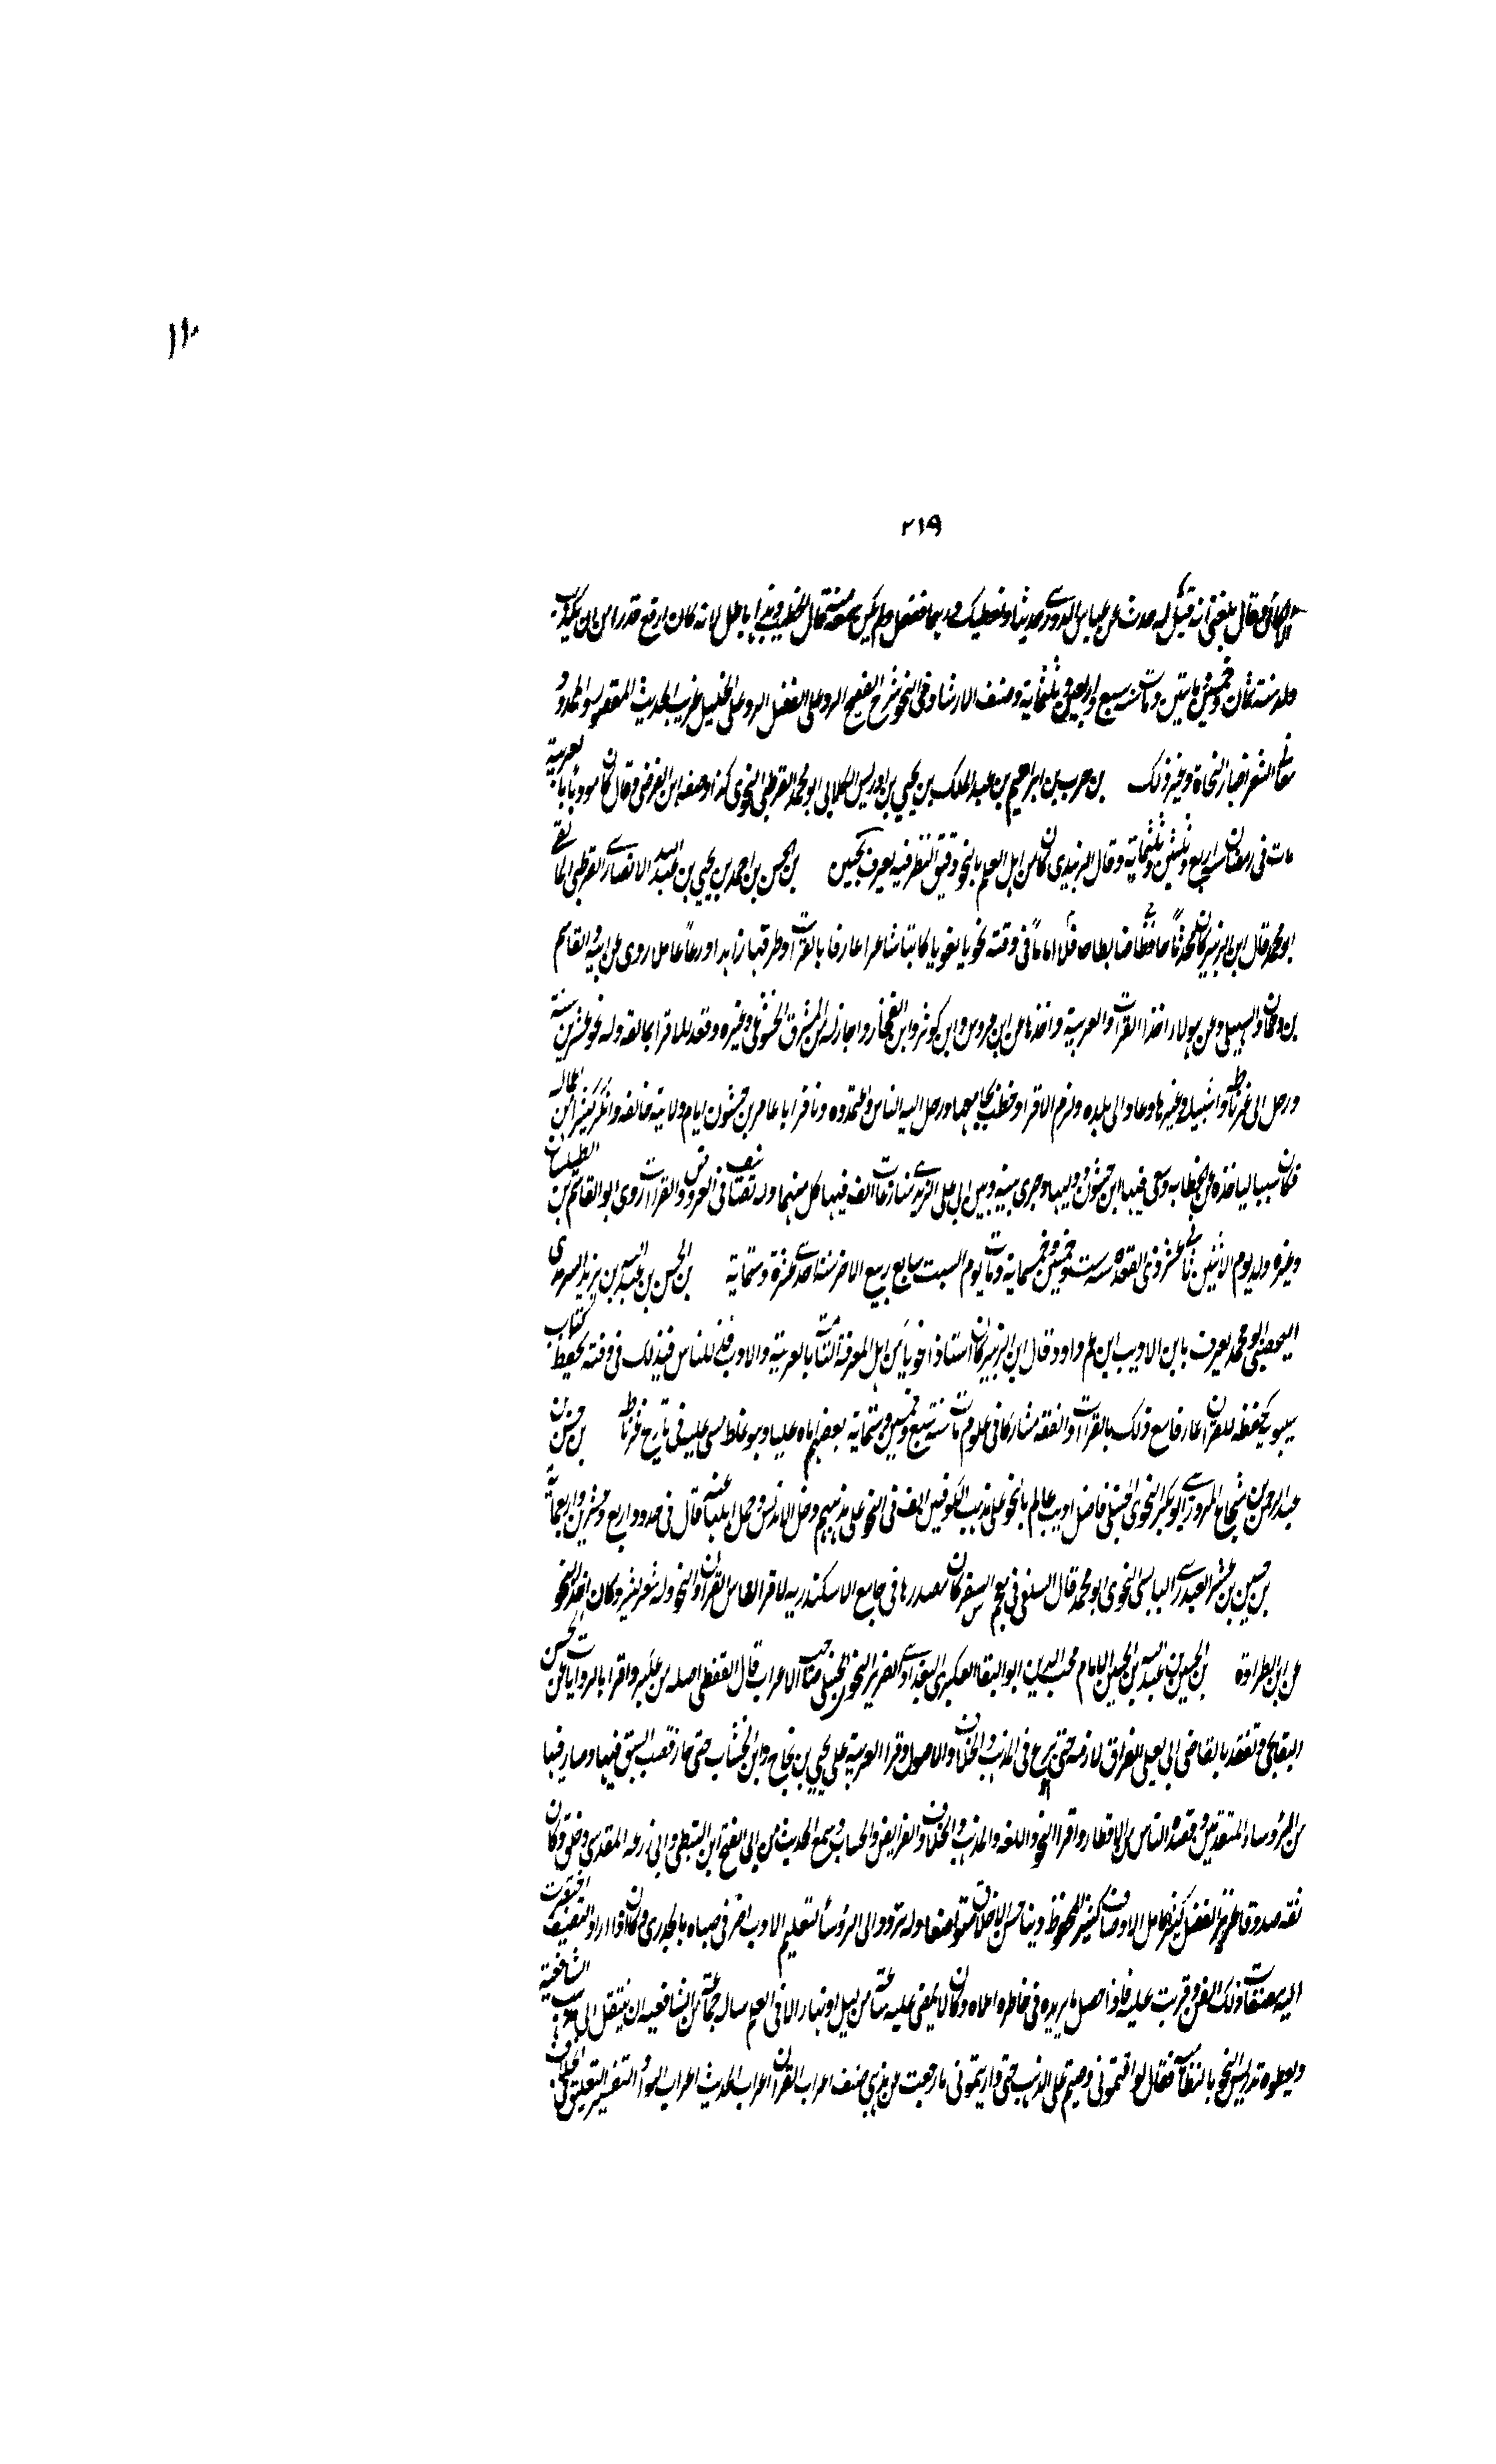 ٢١٩
اللالكائي فقال بلغني انه قيل له حدث عن عباس الدوري حديثا ونعطيك درهما ففعل ولم يكن سمع منه قال الخطيب وهذا باطل لانه كان ارفع قدرا من ان يكذب
ولد سنة ثمان وخمسين ومايتين ومات سنة سبع واربعين وثلثماية وصنف الارشاد في النحو شرح الفصيح الرد على المفضل الرد على الخليل غريب الحديث المقصور والممدود
معاني الشعر اخبار النحاة وغير ذلك بن حرب بن ابراهيم بن عبد الملك بن يحيي بن ادريس الكلابي ابو محمد القرطبي النحوي كذا وصفه ابن الفرضي وقال كان مودبا بالعربية
مات في رمضان سنة اربع وثلثين وثلثماية وقال الزبيدي كان من اهل العلم بالنحو دقيق النظر فيه يعرف بجحين بن الحسن بن احمد بن يحيي بن عبد الله الانصاري القرطبي المالقي
ابو محمد قال ابن الزبير كان محدثا حافظا ضابطا فاضلا اماما في وقته نحويا لغويا كاتبا شاعرا عارفا بالقرآت وطرقها زاهدا ورعا عاملا روى عن ابيه والقاسم
بن دحمان والسهيلي وعن هولاء اخذ القرآت والعربية واخذها عن ابن عروس وابن كوثر وابن الفخار واجاز له من المشرق الخشوعي وغيره وقعد للاقرا بمالقه وله نحو عشرين سنة
ورحل الى غرناطة واشبيلة وغيرها وعاد الى بلده ولزم الاقرا وخطب بجامعها ورحل اليه الناس واعتمدوه ونافر ابا عامر بن حسون ايام ولايته مالقه وانكر كثيرا من افعاله
فكان سببا لتاخذه عن الخطابه وسعى فيها ابن حسون وليها وجرى بينه وبين ابي علي الرندي منازعات الف فيها كل منهما وله تصنيف في العروض والقرآت روى ابو القاسم بن الطيلسان
وغيره ولد يوم الاثنين ثاني عشر ذي القعدة سنه ست وخمسين وخمسماية ومات يوم السبت سابع ربيع الاخر سنة احدى عشرة وستماية بن الحسن بن عبد الله بن يزيد السعدي
اليحصبي ابو محمد يعرف بابن الاديب ابن عم داود قال ابن الزبير كان استاذا نحويا من اهل المعرفة التامة بالعربية والادب للناس في ذلك في وقته يحفظ كتاب
سيبويه كحفظه للقرآن عارفا مع ذلك بالقرآت والفقه مشاركا في علوم مات سنة سبع وخمسين وستماية بعضهم اباه عليا وهو غلط نبهت عليه في تاريخ غرناطة بن حسن بن
عبد الرحمن بن شجاع المروزي ابو بكر النحوي الحنبلي فاضل اديب عالم بالنحو على مذهب الكوفيين الف في النحو على مذهبهم ودخل الاندلس وحمل اهلها عنه قال في حدود اربع وعشرين واربعماية
بن حسين بن عشير العبدري اليابسي النحوي ابو محمد قال السلفي في معجم السفر كان مصدرها في جامع الاسكندرية لاقرا الناس القرآن والنحو وله شعر كثير وكان اخذ النحو
عن ابن الطراوة بن الحسين بن عبد الله بن الحسين الامام محب الدين ابو البقا العكبري البغدادي الضرير النحوي الحنبلي صاحب الاعراب قال القفطي اصله من عكبر واقرا بالروايات عن ابي الحسن
البطايحي وتفقه بالقاضي ابي يعلى الفراق لازمه حتى برع في المذهب والخلاف والاصول وقرا العربية على يحيي بن نجاح وابن الخشاب حتى حاز قصب السبق فيها وصار فيها
من الرؤساء المتقدمين وقصده الناس من الاقطار واقرا النحو واللغة والمذهب والخلاف والفرايض والحساب وسمع الحديث من ابي الفتح ابن البطي وابي زرعه المقدسي وخلق وكان
ثقه صدوقا غزير الفضل كامل الاوصاف كثير المحفوظ دينا حسن الاخلاق متواضعا وله تردد الى الرؤسأ لتعليم الادب اضر في صباه بالجدري وكان اذا اراد التصنيف احضرت
اليه مصنفات ذلك الفن وقريت عليه فاذا حصل ما يريده في خاطره املاه وكان لا يمضي عليه ساعة من ليل او نهار الا في العلم ساله جماعة من الشافعيه ان ينتقل الى مذهب الشافعية
ويعطوه تدريس النحو بالنظامية فقال لو اقمتموني وصببتم علي الذهب حتى واريتموني ما رجعت عن مذهبي صنف اعراب القرآن اعراب الحديث اعراب الشواذ التفسير التعليق في الخلاف